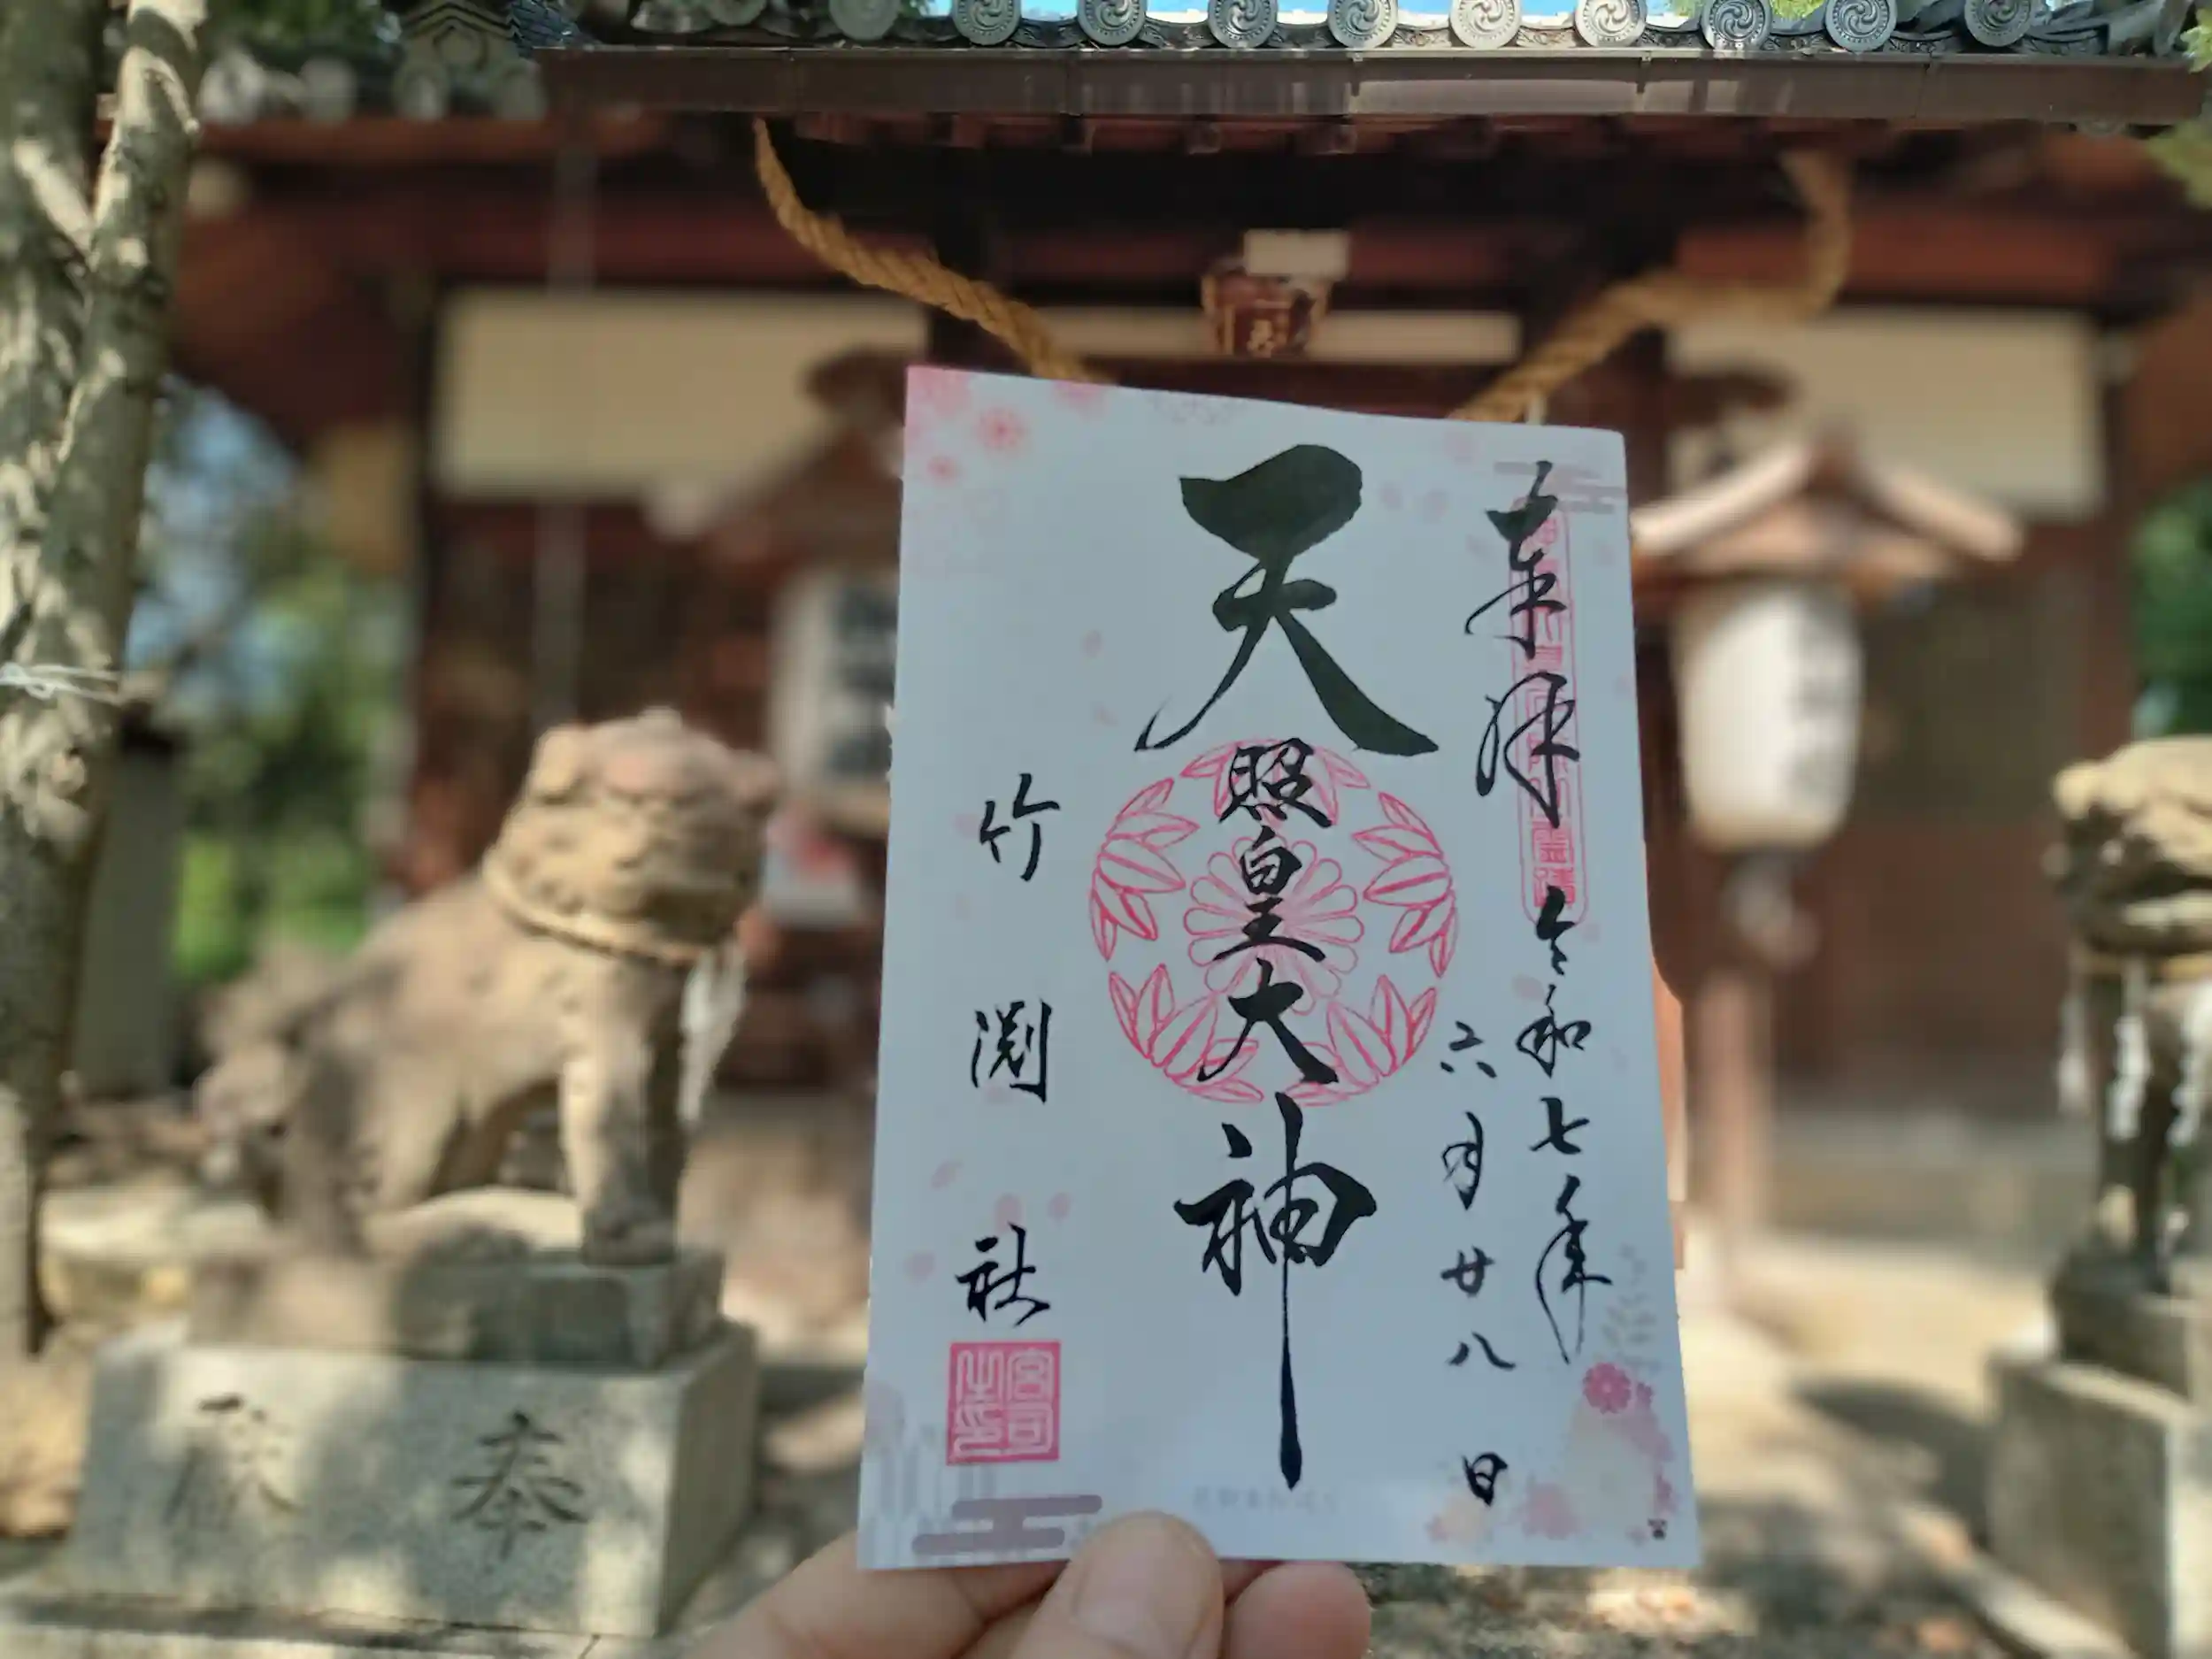 奉拝
令和七年
六月廿八日
天照皇大神
竹渕社
宮司之印
奉
献